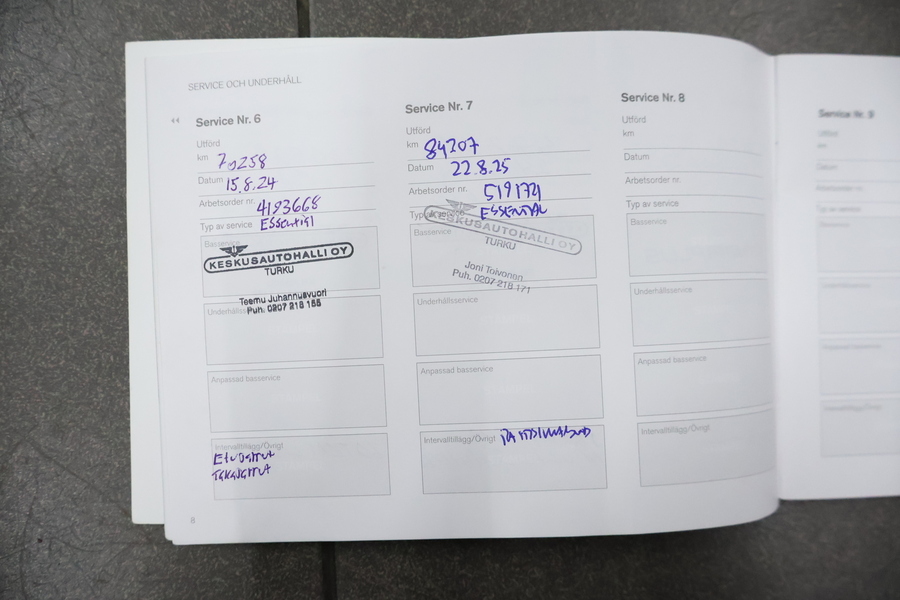 SERVICE OCH UNDERHÅLL
Service Nr. 6
Utförd
km
Datum 15.8.24
Arbetsorder nr. 4193668
Typ av service Essential
Basservice
KESKUSAUTOHALLI OY
TURKU
Teemu Juhannusvuori
Puh. 0207 218 155
Underhållsservice
Anpassad basservice
Intervalltillägg/Övrigt
8
Service Nr. 7
Utförd
km 84207
Datum 22.8.25
Arbetsorder nr. 519174
Typ av service ESSENTIAL
Basservice
KESKUSAUTOHALLI OY
TURKU
Joni Toivonen
Puh. 0207 218 171
Underhållsservice
Anpassad basservice
Intervalltillägg/Övrigt
Service Nr. 8
Utförd
km
Datum
Arbetsorder nr.
Typ av service
Basservice
Underhållsservice
Anpassad basservice
Intervalltillägg/Övrigt
Service Nr. 9
Utförd
km
Datum
Arbetsorder nr.
Typ av service